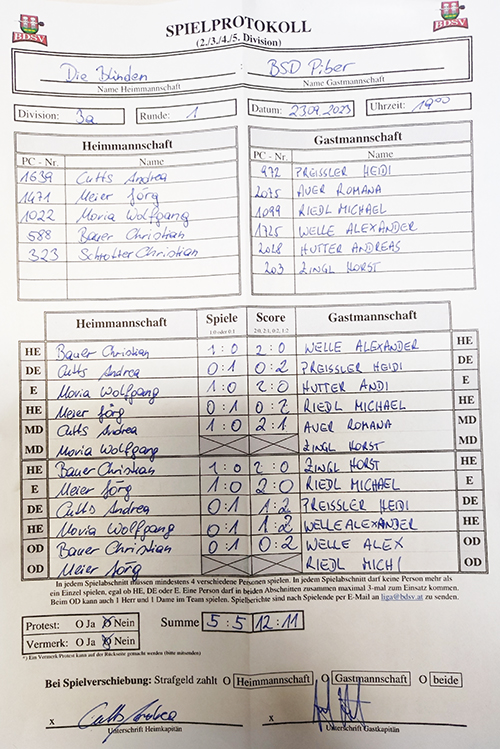 BDSV
SPIELPROTOKOLL
BDSV
(2./3./4./5. Division)
Die Blinden : BSD Piber
Name Heimmannschaft Name Gastmannschaft
Division: 3a Runde: 1 Datum: 23.09.2023 Uhrzeit: 19⁰⁰
Heimmannschaft Gastmannschaft
PC - Nr. Name PC - Nr. Name
1639 Cutts Andrea 972 PREISSLER HEIDI
1471 Meier Jörg 2075 AUER ROMANA
1022 Moria Wolfgang 1099 RIEDL MICHAEL
588 Bauer Christian 1725 WELLE ALEXANDER
323 Christian 2028 HUTTER ANDREAS
203 ZINGL HORST
Heimmannschaft Spiele Score Gastmannschaft
1:0 oder 0:1 2:0, 2:1, 0:2, 1:2
HE Bauer Christian 1:0 2:0 WELLE ALEXANDER HE
DE Cutts Andrea 0:1 0:2 PREISSLER HEIDI DE
E Moria Wolfgang 1:0 2:0 HUTTER ANDI E
HE Meier Jörg 0:1 0:2 RIEDL MICHAEL HE
MD Cutts Andrea 1:0 2:1 AUER ROMANA MD
MD Moria Wolfgang ZINGL HORST MD
HE Bauer Christian 1:0 2:0 ZINGL HORST HE
E Meier Jörg 1:0 2:0 RIEDL MICHAEL E
DE Cutts Andrea 0:1 1:2 PREISSLER HEIDI DE
HE Moria Wolfgang 0:1 1:2 WELLE ALEXANDER HE
OD Bauer Christian 0:1 0:2 WELLE ALEX OD
OD Meier Jörg RIEDL MICHI OD
In jedem Spielabschnitt müssen mindestens 4 verschiedene Personen spielen. In jedem Spielabschnitt darf keine Person mehr als
ein Einzel spielen, egal ob HE, DE oder E. Eine Person darf in beiden Abschnitten zusammen maximal 3-mal zum Einsatz kommen.
Beim OD kann auch 1 Herr und 1 Dame im Team spielen. Spielberichte sind nach Spielende per E-Mail an liga@bdsv.at zu senden.
Protest: O Ja O Nein Summe 5:5 12:11
Vermerk: O Ja O Nein
*) Ein Vermerk/Protest kann auf der Rückseite gemacht werden (bitte mitsenden)
Bei Spielverschiebung: Strafgeld zahlt O Heimmannschaft O Gastmannschaft O beide
x Cutts Andrea x
Unterschrift Heimkapitän Unterschrift Gastkapitän